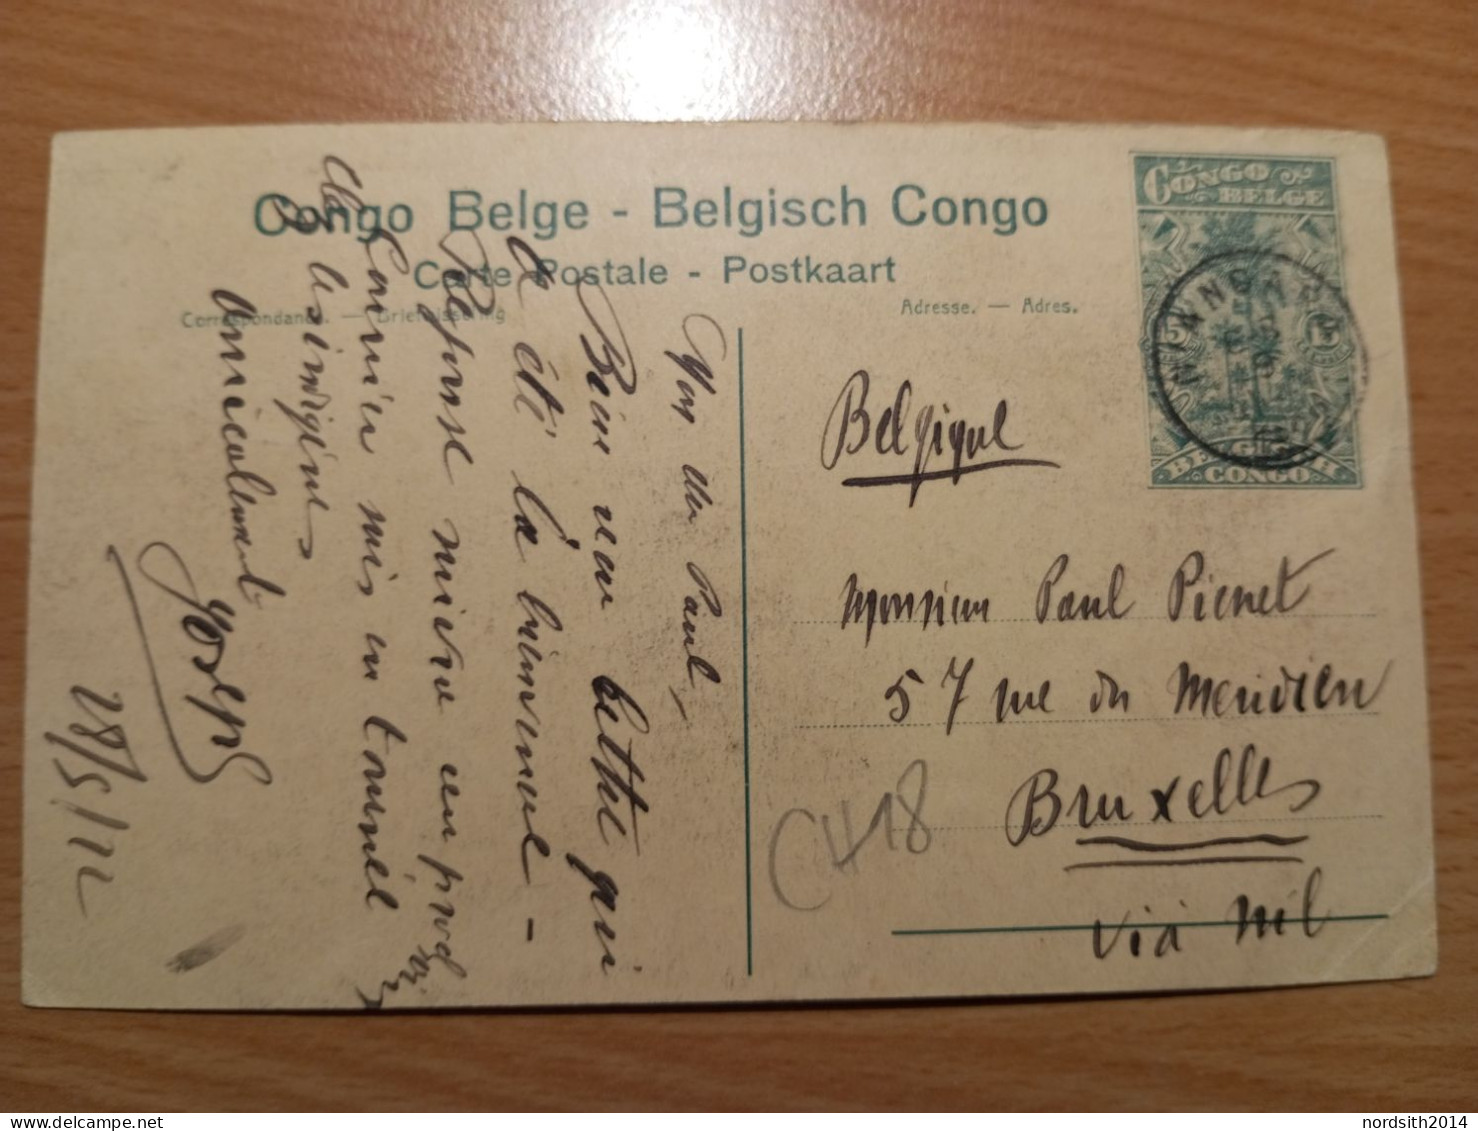 Congo Belge - Belgisch Congo
Carte Postale - Postkaart
Correspondance. — Briefwisseling
Adresse. — Adres.
CONGO BELGE
15
BELGISCH CONGO
Mon cher Paul,
Bien reçu lettre qui
a été la bienvenue -
Réponse suivra au prochain
Courrier suis en tournée
chez les indigènes
Amicalement
Joseph
28/5/12
Belgique
Monsieur Paul Pienet
57 rue du Meridien
Bruxelles
via Nil
CH18
nordsith2014